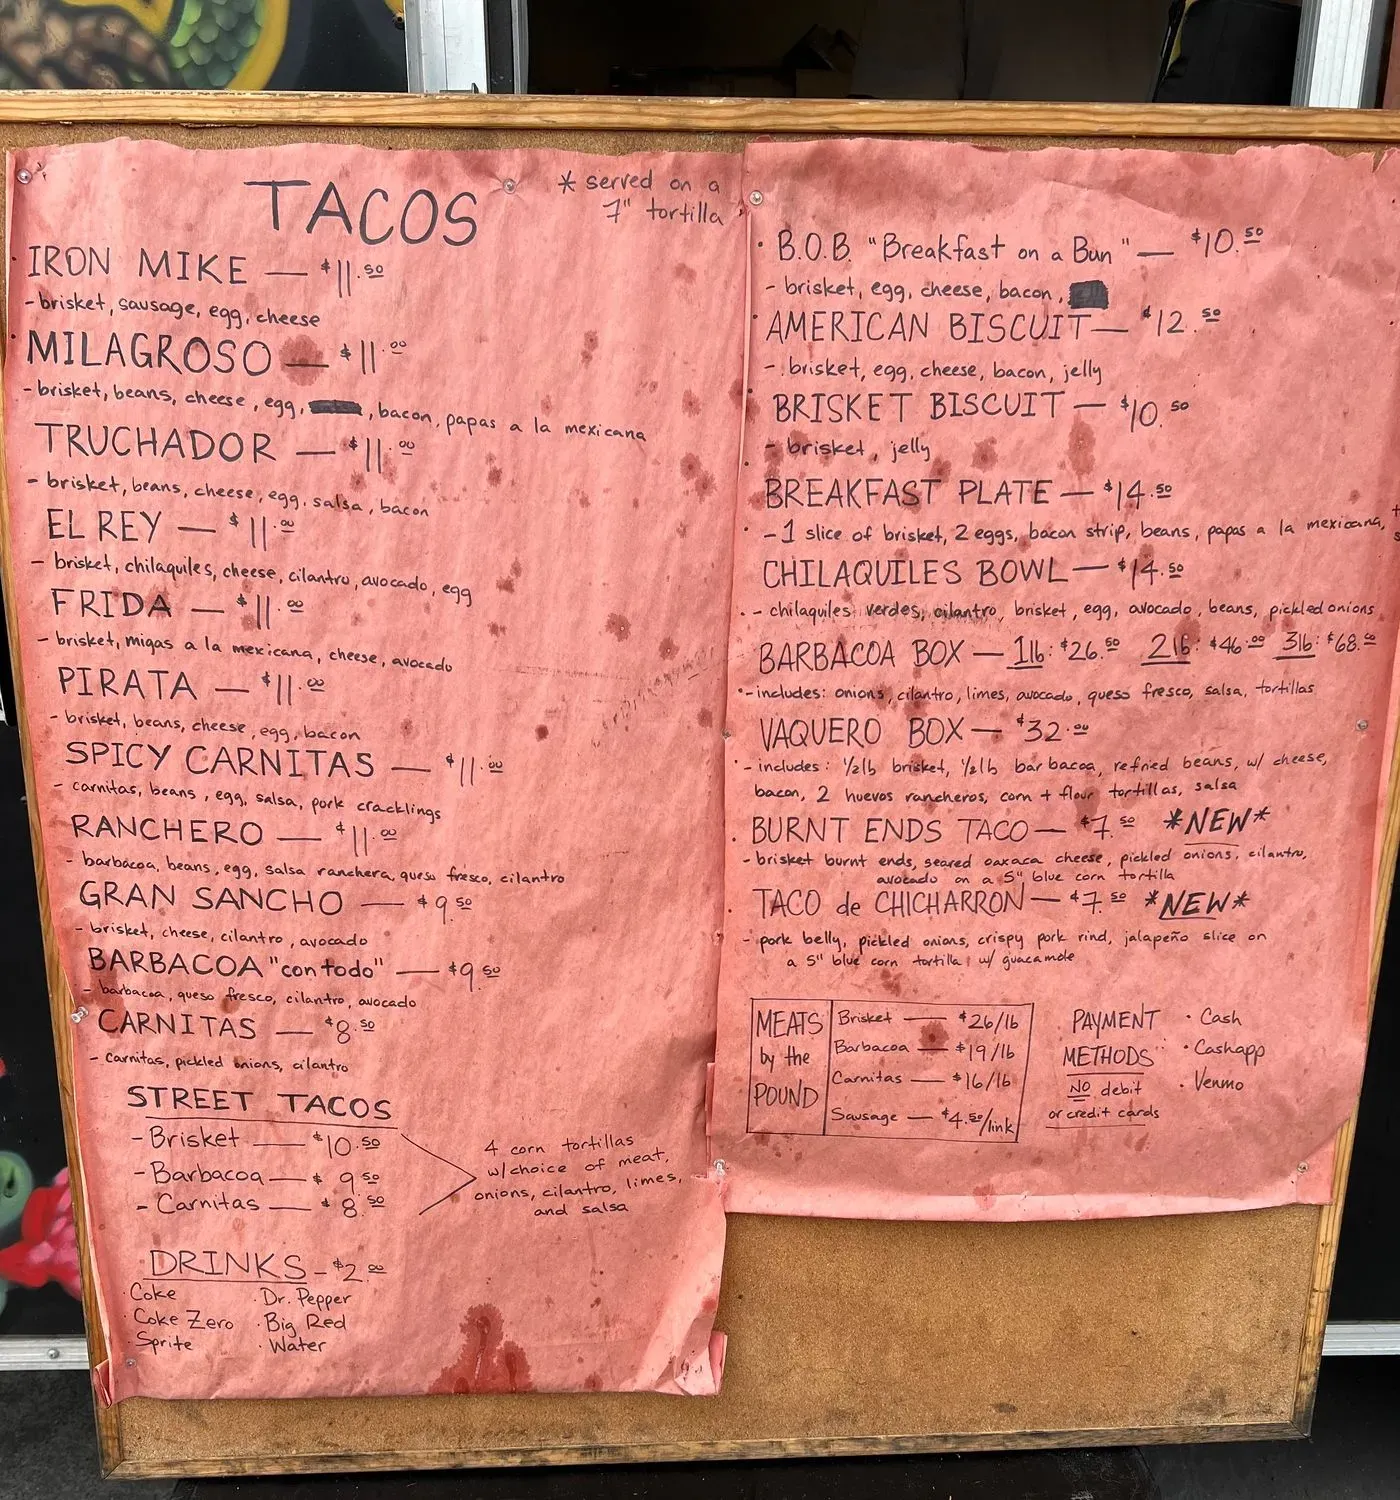 TACOS
* served on a
7" tortilla
IRON MIKE — $11.50
- brisket, sausage, egg, cheese
MILAGROSO — $11.00
- brisket, beans, cheese, egg, , bacon, papas a la mexicana
TRUCHADOR — $11.00
- brisket, beans, cheese, egg, salsa, bacon
EL REY — $11.00
- brisket, chilaquiles, cheese, cilantro, avocado, egg
FRIDA — $11.00
- brisket, migas a la mexicana, cheese, avocado
PIRATA — $11.00
- brisket, beans, cheese, egg, bacon
SPICY CARNITAS — $11.00
- carnitas, beans, egg, salsa, pork cracklings
RANCHERO — $11.00
- barbacoa, beans, egg, salsa ranchera, queso fresco, cilantro
GRAN SANCHO — $9.50
- brisket, cheese, cilantro, avocado
BARBACOA "con todo" — $9.50
- barbacoa, queso fresco, cilantro, avocado
CARNITAS — $8.50
- carnitas, pickled onions, cilantro
STREET TACOS
- Brisket — $10.50
- Barbacoa — $9.50
- Carnitas — $8.50
4 corn tortillas
w/choice of meat,
onions, cilantro, limes,
and salsa
DRINKS - $2.00
· Coke
· Coke Zero
· Sprite
· Dr. Pepper
· Big Red
· Water
· B.O.B. "Breakfast on a Bun" — $10.50
- brisket, egg, cheese, bacon,
· AMERICAN BISCUIT — $12.50
- brisket, egg, cheese, bacon, jelly
· BRISKET BISCUIT — $10.50
- brisket, jelly
· BREAKFAST PLATE — $14.50
- 1 slice of brisket, 2 eggs, bacon strip, beans, papas a la mexicana,
· CHILAQUILES BOWL — $14.50
- chilaquiles verdes, cilantro, brisket, egg, avocado, beans, pickled onions
· BARBACOA BOX — 1lb: $26.50 2lb: $46.00 3lb: $68.00
- includes: onions, cilantro, limes, avocado, queso fresco, salsa, tortillas
· VAQUERO BOX — $32.00
- includes: 1/2lb brisket, 1/2lb barbacoa, refried beans, w/ cheese,
bacon, 2 huevos rancheros, corn + flour tortillas, salsa
· BURNT ENDS TACO — $7.50 *NEW*
- brisket burnt ends, seared oaxaca cheese, pickled onions, cilantro,
avocado on a 5" blue corn tortilla
· TACO de CHICHARRON — $7.50 *NEW*
- pork belly, pickled onions, crispy pork rind, jalapeño slice on
a 5" blue corn tortilla w/ guacamole
MEATS
by the
POUND
Brisket — $26/lb
Barbacoa — $19/lb
Carnitas — $16/lb
Sausage — $4.50/link
PAYMENT
METHODS
NO debit
or credit cards
· Cash
· Cashapp
· Venmo